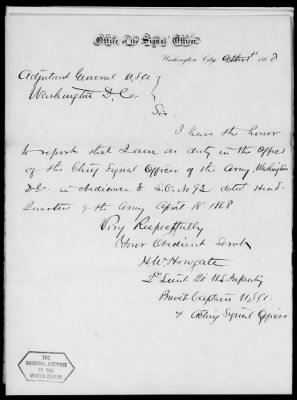 Office of the Signal Officer,
Washington City, 1868
Adjutant General USA
Washington D.C.
Sir
I have the honor
to report that I am on duty in the Office
of the Chief Signal Officer of the Army, Washington
D.C. in obedience to S.O. No 92 dated Head
Quarters of the Army April 18 1868
Very Respectfully
Your Obedient Servt
H.W. Howgate
2d Lieut 20 U.S. Infantry
Brevet Captain U.S.A.
& Acting Signal Officer
THE
NATIONAL ARCHIVES
OF THE
UNITED STATES